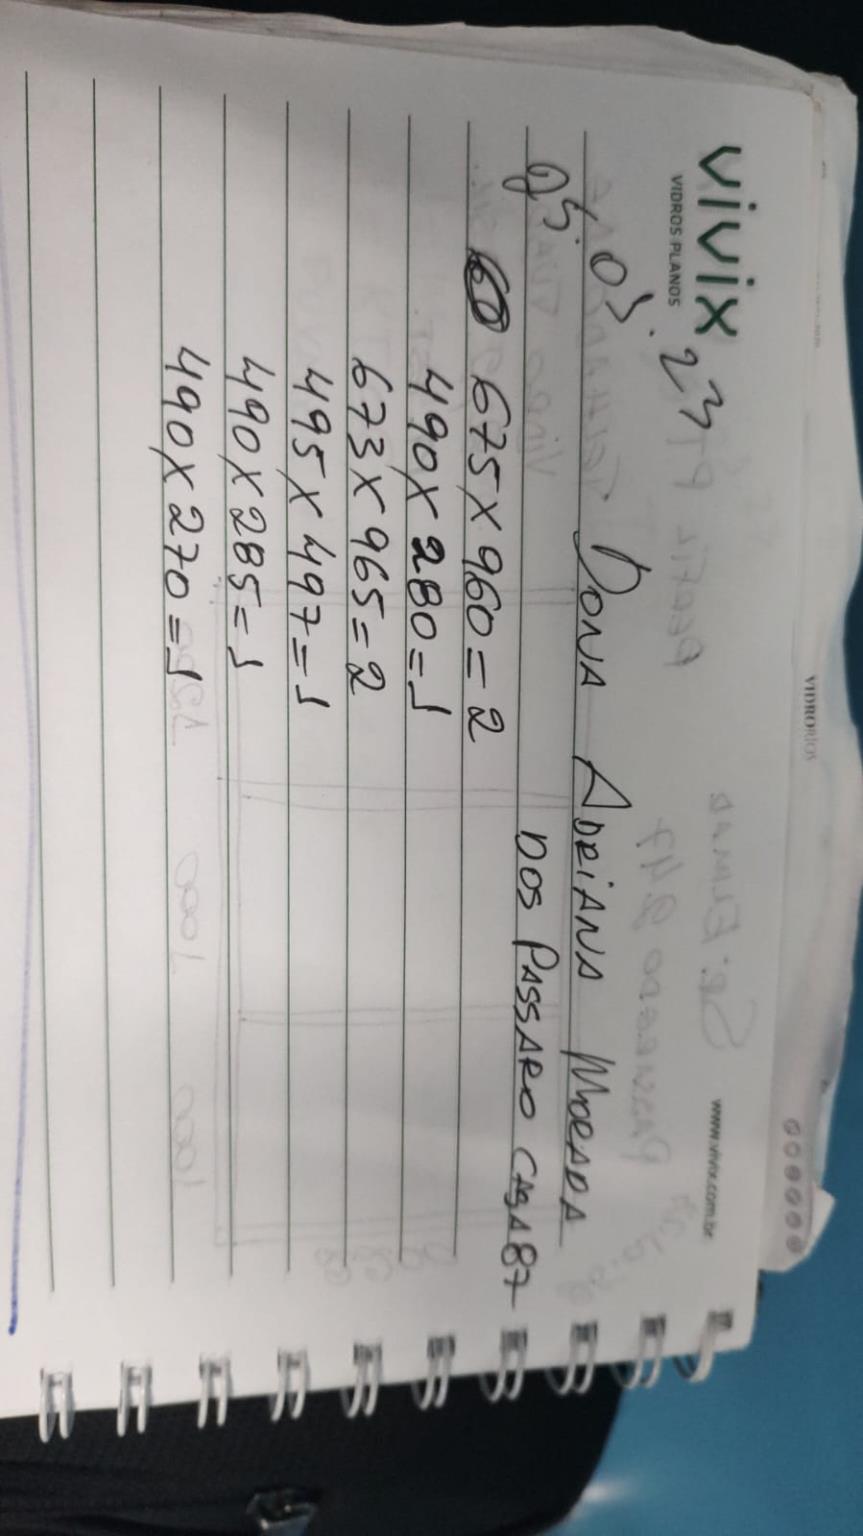 vivix
VIDROS PLANOS
www.vivix.com.br
VIDRO
03.23 DONA ADRIANA MORADA
DOS PASSARO CASA 87
675 X 960 = 2
490 X 280 = 1
673 X 965 = 2
495 X 497 = 1
490 X 285 = 1
490 X 270 = 1